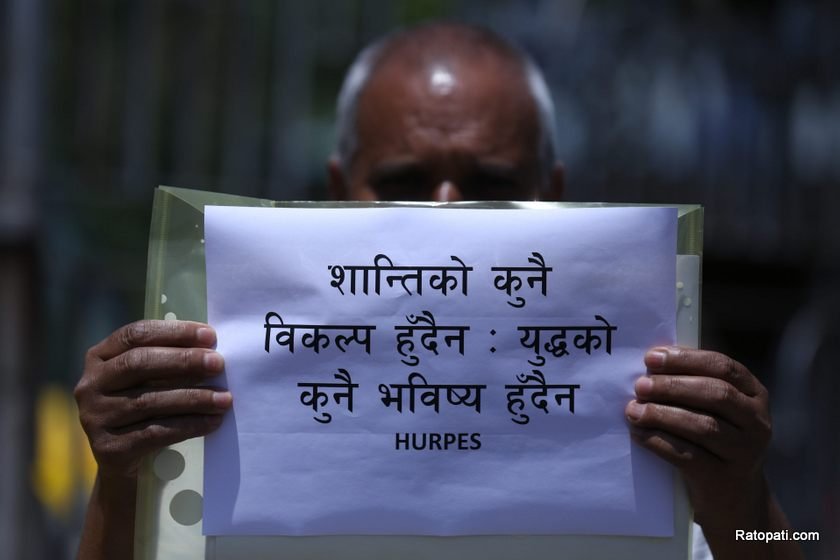 शान्तिको कुनै
विकल्प हुँदैन : युद्धको
कुनै भविष्य हुँदैन
HURPES
Ratopati.com